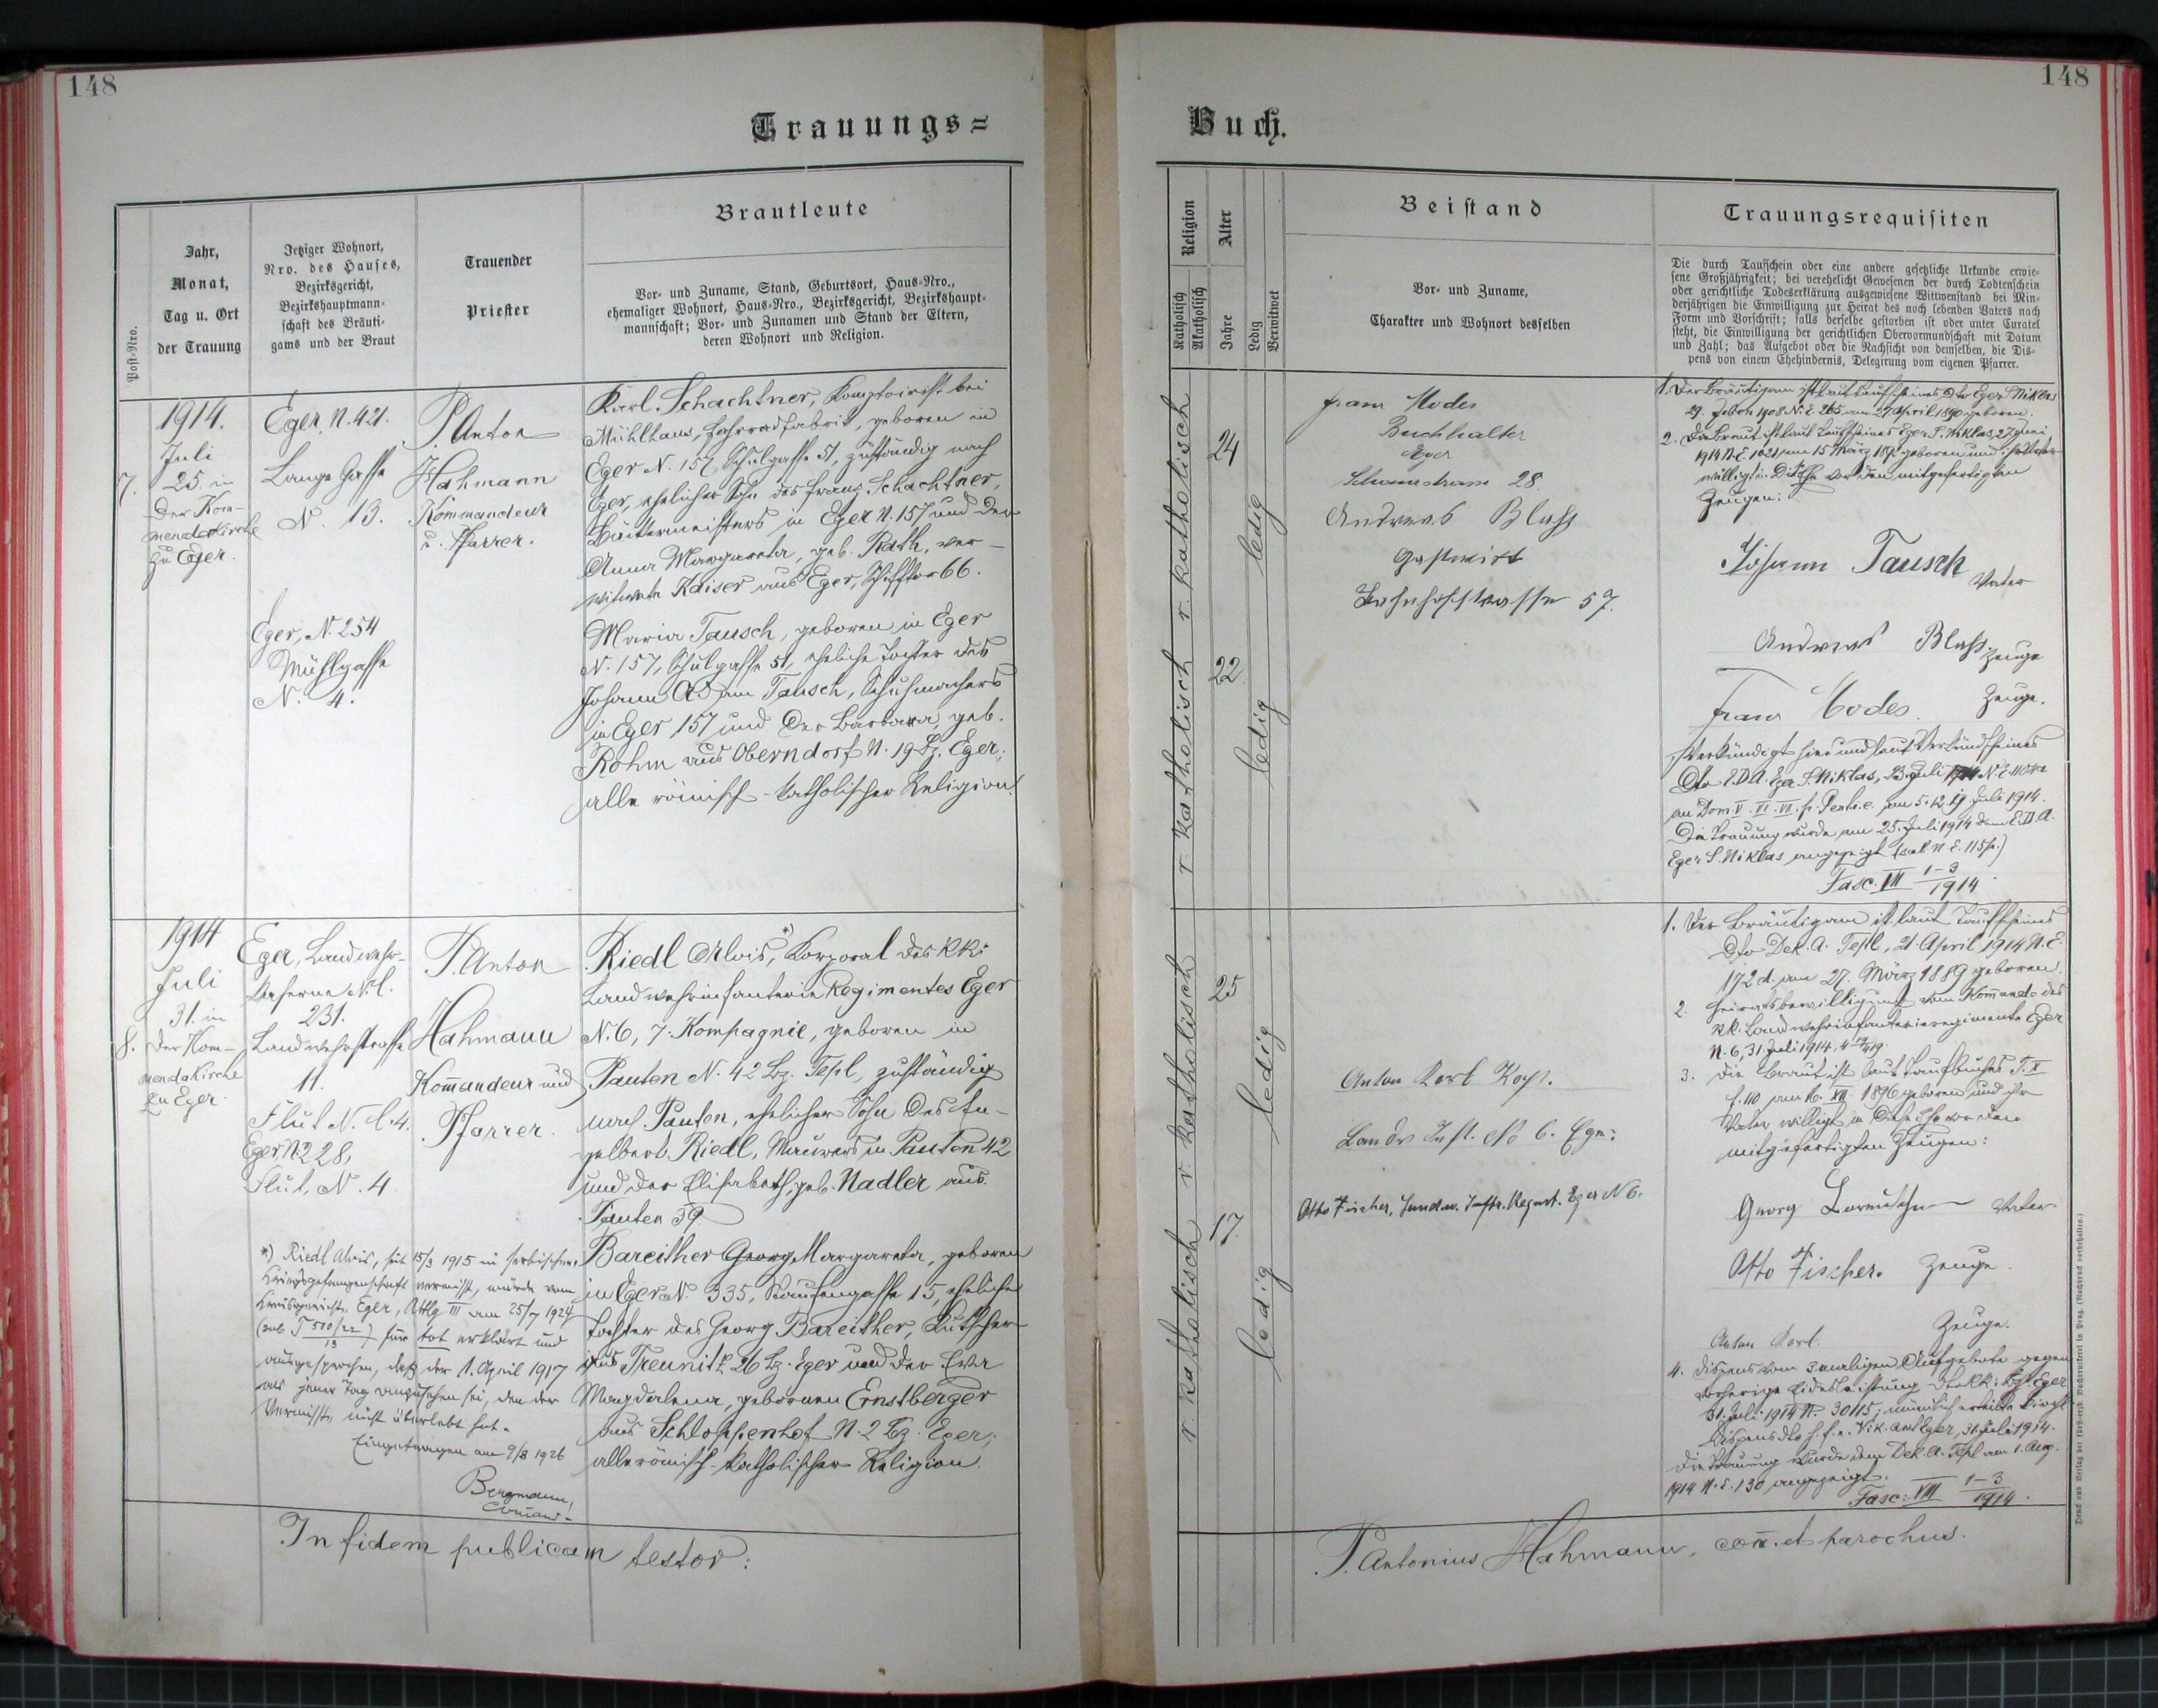 148
148
Trauungs=
Buch.
Post-Nro.
Jahr,
Monat,
Tag u. Ort
der Trauung
Jetziger Wohnort,
Nro. des Hauses,
Bezirksgericht,
Bezirkshauptmann-
schaft des Bräuti-
gams und der Braut
Trauender
Priester
Brautleute
Vor- und Zuname, Stand, Geburtsort, Haus-Nro.,
ehemaliger Wohnort, Haus-Nro., Bezirksgericht, Bezirkshaupt-
mannschaft; Vor- und Zunamen und Stand der Eltern,
deren Wohnort und Religion.
Religion
Katholisch
Akatholisch
Alter
Jahre
Ledig
Verwitwet
Beistand
Vor- und Zuname,
Charakter und Wohnort desselben
Trauungsrequisiten
Die durch Taufschein oder eine andere gesetzliche Urkunde erwie-
sene Großjährigkeit; bei verehelicht Gewesenen der durch Todtenschein
oder gerichtliche Todeserklärung ausgewiesene Witwenstand bei Min-
derjährigen die Einwilligung zur Heirat des noch lebenden Vaters nach
Form und Vorschrift; falls derselbe gestorben ist oder unter Curatel
steht, die Einwilligung der gerichtlichen Obervormundschaft mit Datum
und Zahl; das Aufgebot oder die Nachsicht von demselben, die Dis-
pens von einem Ehehindernis, Delegirung vom eigenen Pfarrer.
7.
1914.
Juli
25. in
der Kom-
mendakirche
zu Eger.
Eger, N. 421.
Lange Gasse
N. 13.
Eger, N. 254
Mühlgasse
N. 4.
P. Anton
Hahmann
Kommandeur
u. Pfarrer.
Karl Schachtner, Komptoirist bei
Mühlhaus, Fahrradfabrik, geboren in
Eger N. 157, Schulgasse 51, zuständig nach
Eger, ehelicher Sohn des Franz Schachtner,
in Eger N. 157 und der
Anna Margareta, geb. Rath, ver-
witwete Kaiser aus Eger, Schifftor 66.
Maria Tausch, geboren in Eger
N. 157, Schulgasse 51, eheliche Tochter des
Johann Adam Tausch, Schuhmachers
in Eger 157 und der Barbara, geb.
Rohm aus Oberndorf N. 19 Bz. Eger;
alle römisch-katholischer Religion.
r. katholisch
r. katholisch
24
22
ledig
ledig
Franz Modes
Buchhalter
Eger
28.
Andreas Blass
Gastwirt
Bahnhofstrasse 57.
1. Der Bräutigam ist laut Taufscheines dto Eger S. Niklas
29. 1908 N.E. 265 am 27. April 1890 geboren.
2. Die Braut ist laut Taufscheines Eger S. Niklas, 27. Juni
1914 N.E. 1021 am 15. März geboren und ihr Vater
willigt in die Ehe vor den mitgefertigten
Zeugen:
Johann Tausch
Vater
Andreas Blass Zeuge
Franz Modes. Zeuge.
Verkündigt hier und laut Verkündscheines
dto E.D.A. Eger S. Niklas, 23. Juli 1914 N.E.
an Dom. V. VI. VII. p. Pent. i.e. am 5. 12. 19. Juli 1914.
Die Trauung wurde am 25. Juli 1914 dem E.D.A.
Eger S. Niklas angezeigt (sub N.E. 115/p.)
Fasc. VII 1-3/1914
8.
1914
Juli
31. in
der Kom-
mendakirche
zu Eger.
Eger, Landwehr-
Kaserne N.C.
231.
Landwehrstrasse
11.
Flut N. C. 4.
Eger N. 228,
Flut, N. 4.
P. Anton
Hahmann
Kommandeur und
Pfarrer.
Riedl Alois,*) Korporal des KK.
Landwehrinfanterie Regimentes Eger
N. 6, 7. Kompagnie, geboren in
Pauten N. 42 Bz. Tepl, zuständig
nach Pauten, ehelicher Sohn des En-
gelbert Riedl, Maurers in Pauten 42
und der Elisabeth, geb. Nadler aus
Pauten 39.
Bareither Georg Margareta, geboren
in Eger N. 335, 15, eheliche
Tochter des Georg Bareither, Kutscher
aus Treunitz 26 Bz. Eger und der Eva
Magdalena, gebornen Ernstberger
aus Schloppenhof N. 2 Bz. Eger;
alle römisch-katholischer Religion.
*) Riedl Alois, seit 15/3 1915 in serbischer
Kriegsgefangenschaft vermisst, wurde vom
Kreisgerichte Eger, Abtlg III am 25/7 1924
(sub T 500/22) für tot erklärt und
13
ausgesprochen, daß der 1. April 1917
als jener Tag anzusehen sei, den der
Vermisste nicht überlebt hat.
Eingetragen am 9/8 1926
Bergmann,
r. katholisch
r. katholisch
25
17.
ledig
ledig
Anton Karl
N 6. Eger
Otto Fischer, Landw. Inftr. Regmt. Eger N 6.
1. Der Bräutigam ist laut Taufscheines
dto Dek. A. Tepl, 21. April 1914 N.E.
172 d. am 27. März 1889 geboren.
2. Heiratsbewilligung vom Kommando des
kk. Landwehrinfanterieregimente Eger
N. 6, 31. Juli 1914.
3. Die Braut ist laut Taufbuches T. X
f. 110 am 16. XII. 1896 geboren und ihr
Vater willigt in diese Ehe vor den
mitgefertigten Zeugen:
Georg Vater
Otto Fischer. Zeuge.
Anton Karl. Zeuge.
4. Dispens vom 3maligen Aufgebote gegen
vorherige Eidesleistung dto kk. Bzh Eger
31. Juli 1914 N. 30115;
Dispens dto Vik. amt Eger, 31. Juli 1914.
Die Trauung wurde dem Dek. A. Tepl am 1. Aug.
1914 N.E. 130 angezeigt.
Fasc: VIII 1-3/1914.
In fidem publicam testor:
P. Antonius Hahmann, com. et parochus.